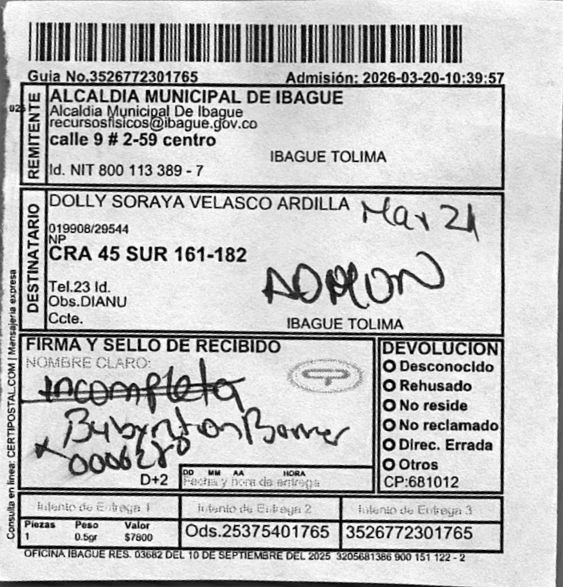 Guia No.3526772301765 Admisión: 2026-03-20-10:39:57
REMITENTE
ALCALDIA MUNICIPAL DE IBAGUE
Alcaldia Municipal De Ibague
recursosfisicos@ibague.gov.co
calle 9 # 2-59 centro
IBAGUE TOLIMA
Id. NIT 800 113 389 - 7
DESTINATARIO
DOLLY SORAYA VELASCO ARDILLA
Mar 21
019908/29544
NP
CRA 45 SUR 161-182
Tel.23 Id.
Obs.DIANU
Ccte.
IBAGUE TOLIMA
FIRMA Y SELLO DE RECIBIDO
NOMBRE CLARO:
incompleta
D+2
DD MM AA HORA
Fecha y hora de entrega
DEVOLUCION
Desconocido
Rehusado
No reside
No reclamado
Direc. Errada
Otros
CP:681012
Intento de Entrega 1 Intento de Entrega 2 Intento de Entrega 3
Piezas Peso Valor
1 0.5gr $7800
Ods.25375401765
3526772301765
OFICINA IBAGUE RES. 03682 DEL 10 DE SEPTIEMBRE DEL 2025 3205681386 900 151 122 - 2
Consulta en linea: CERTIPOSTAL.COM | Mensajeria expresa